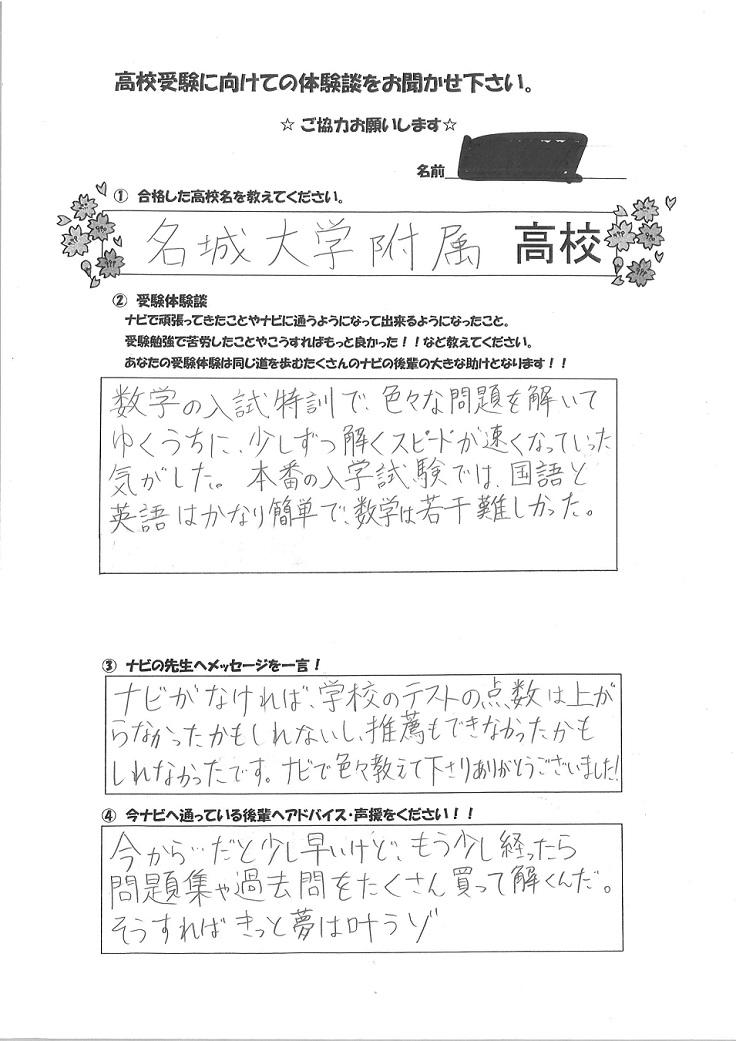 高校受験に向けての体験談をお聞かせ下さい。
☆ ご協力お願いします☆
名前
① 合格した高校名を教えてください。
名城大学附属 高校
② 受験体験談
ナビで頑張ってきたことやナビに通うようになって出来るようになったこと。
受験勉強で苦労したことやこうすればもっと良かった！！など教えてください。
あなたの受験体験は同じ道を歩むたくさんのナビの後輩の大きな助けとなります！！
数学の入試特訓で、色々な問題を解いて
ゆくうちに、少しずつ解くスピードが速くなっていった
気がした。本番の入学試験では、国語と
英語はかなり簡単で、数学は若干難しかった。
③ ナビの先生へメッセージを一言！
ナビがなければ、学校のテストの点数は上が
らなかったかもしれないし、推薦もできなかったかも
しれなかったです。ナビで色々教えて下さりありがとうございました!
④ 今ナビへ通っている後輩へアドバイス・声援をください！！
今から…だと少し早いけど、もう少し経ったら
問題集や過去問をたくさん買って解くんだ。
そうすればきっと夢は叶うゾ